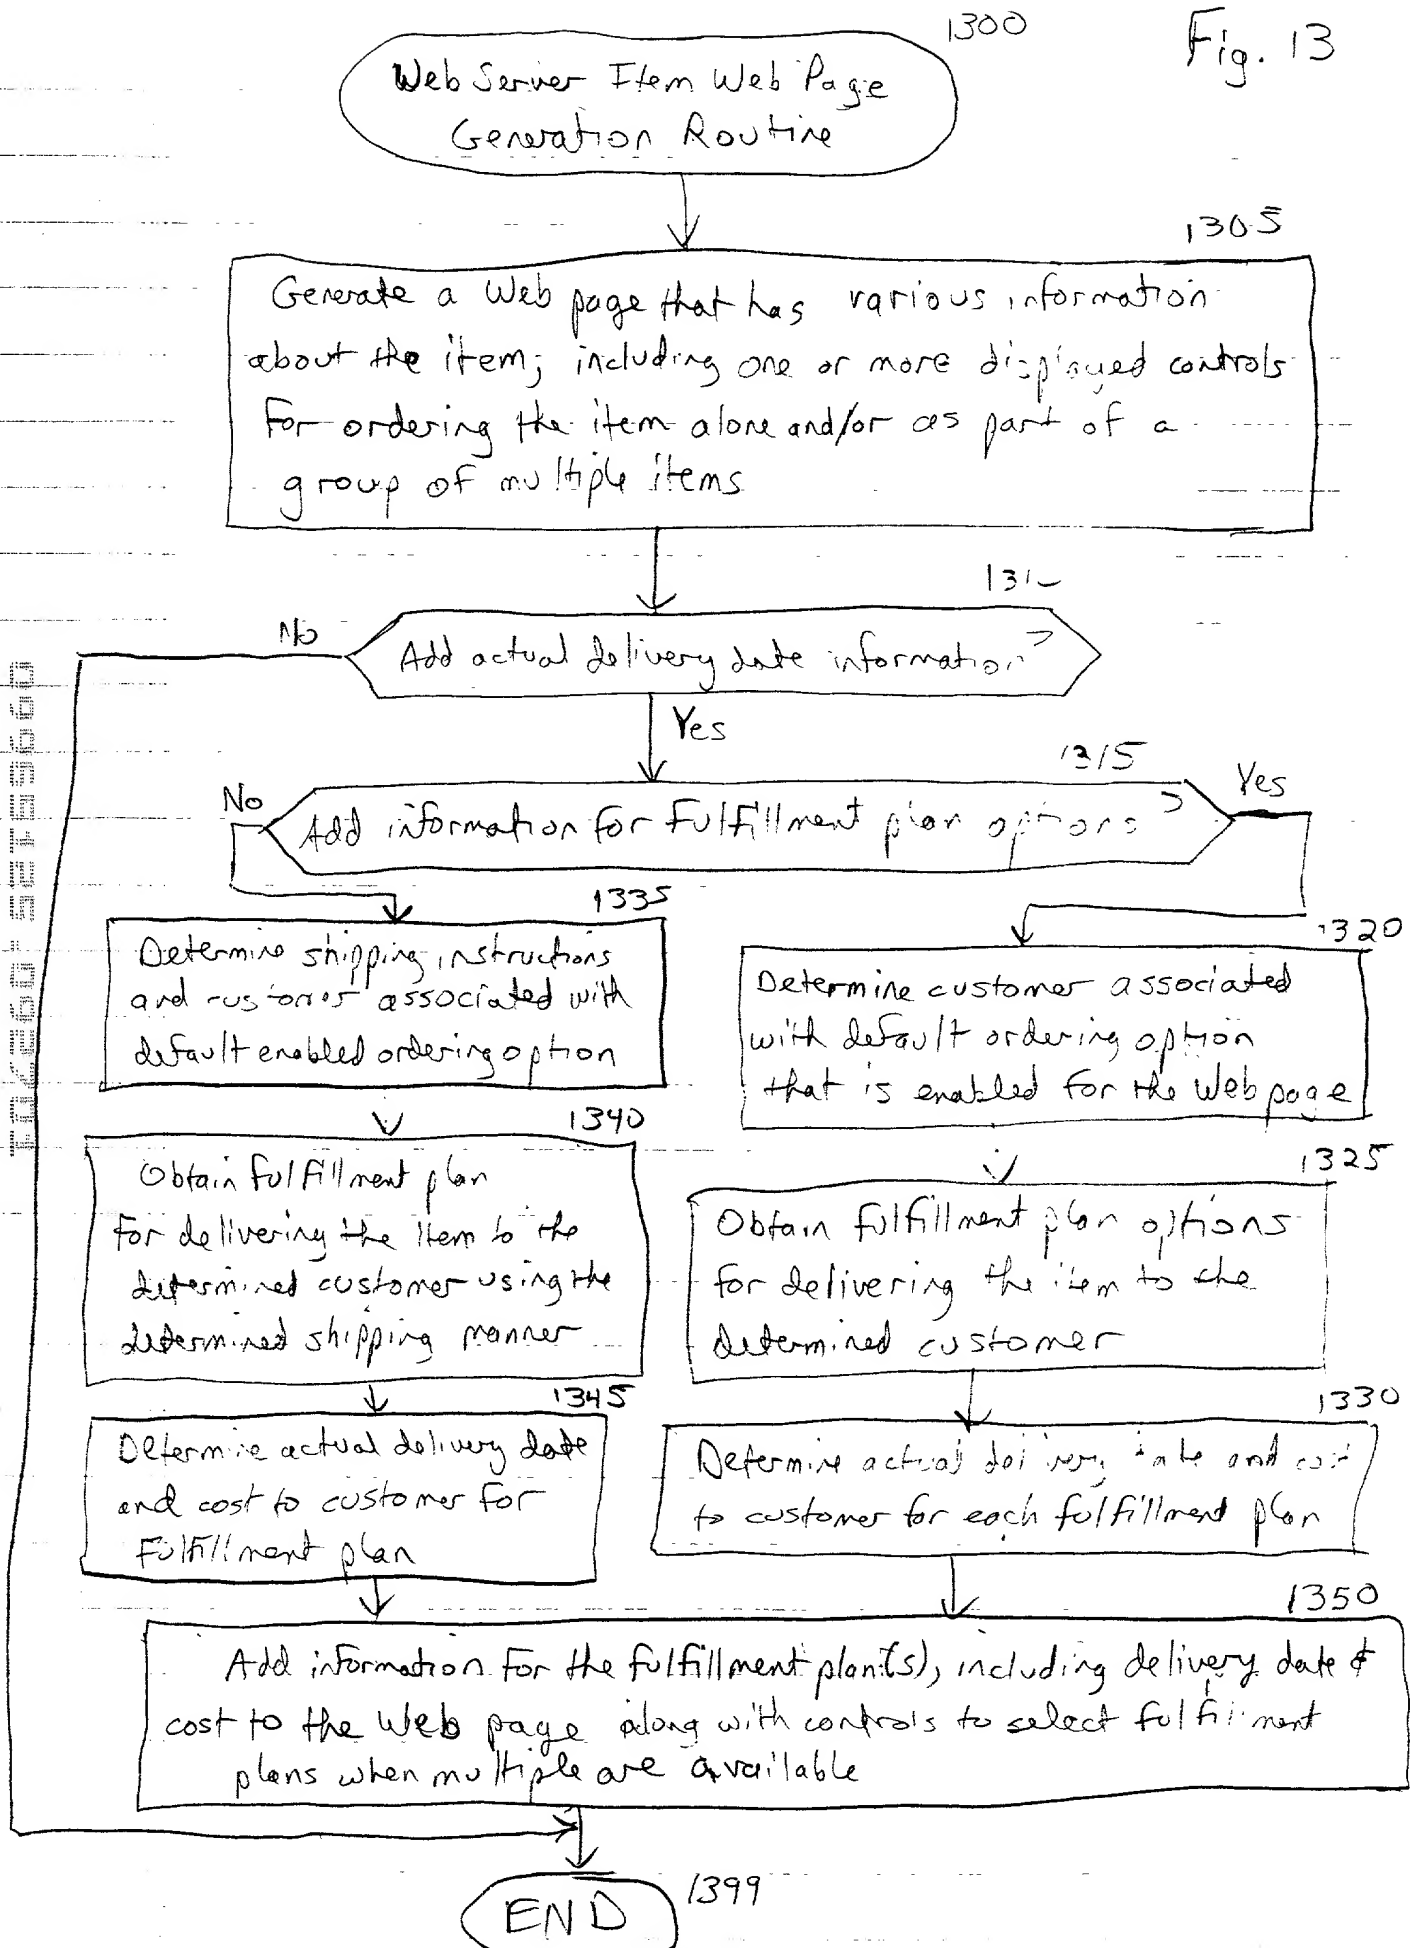 1300
Fig. 13
Web Server Item Web Page
Generation Routine
1305
Generate a Web page that has various information
about the item, including one or more displayed controls
for ordering the item alone and/or as part of a
group of multiple items
Add actual delivery date information?
No
Yes
1315
Add information for fulfillment plan options?
No
Yes
1335
Determine shipping instructions
and customer associated with
default enabled ordering option
1320
Determine customer associated
with default ordering option
that is enabled for the Web page
1340
Obtain fulfillment plan
for delivering the item to the
determined customer using the
determined shipping manner
1325
Obtain fulfillment plan options
for delivering the item to the
determined customer
1345
Determine actual delivery date
and cost to customer for
fulfillment plan
1330
Determine actual delivery date and cost
to customer for each fulfillment plan
1350
Add information for the fulfillment plan(s), including delivery date &
cost to the Web page along with controls to select fulfillment
plans when multiple are available
END
1399